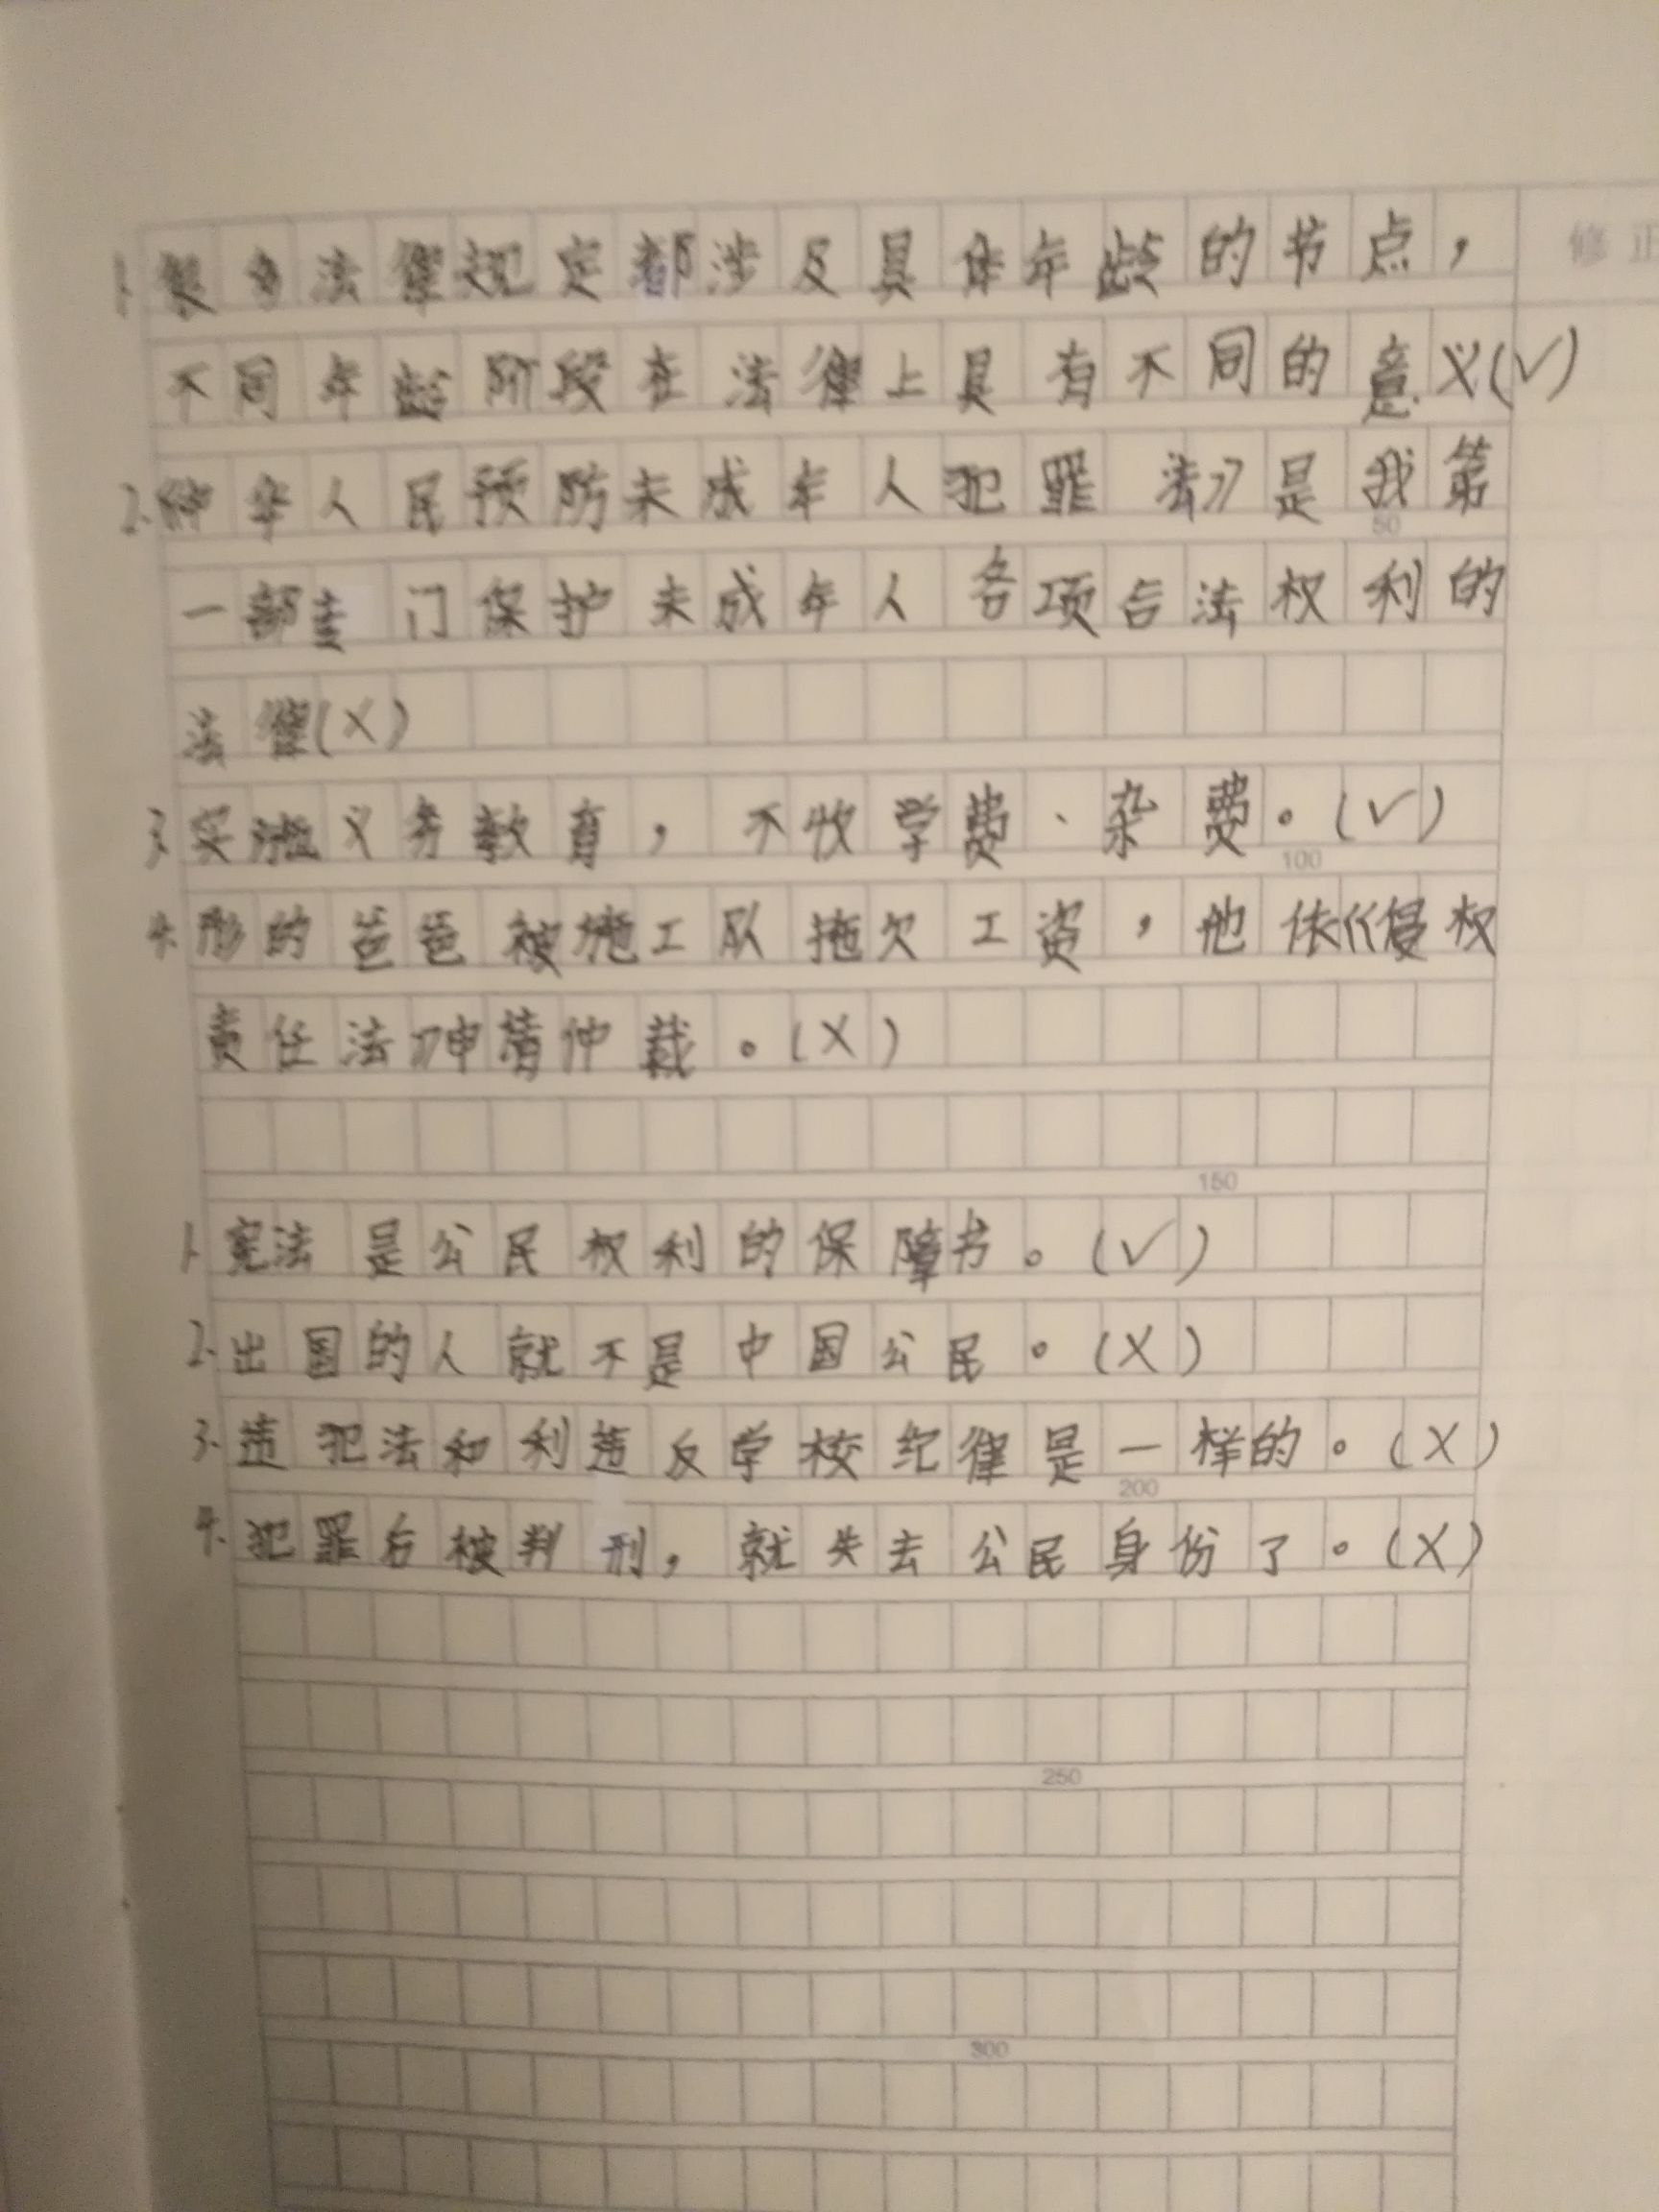 1.很多法律规定都涉及具体年龄的节点，
修正
不同年龄阶段在法律上具有不同的意义(√)
2.《中华人民预防未成年人犯罪法》是我第
50
一部专门保护未成年人各项合法权利的
法律(X)
3.实施义务教育，不收学费、杂费。(√)
100
4.彤的爸爸被施工队拖欠工资，他依《侵权
责任法》申请仲裁。(X)
150
1.宪法是公民权利的保障书。(√)
2.出国的人就不是中国公民。(X)
3.违犯法和利违反学校纪律是一样的。(X)
200
4.犯罪后被判刑，就失去公民身份了。(X)
250
300